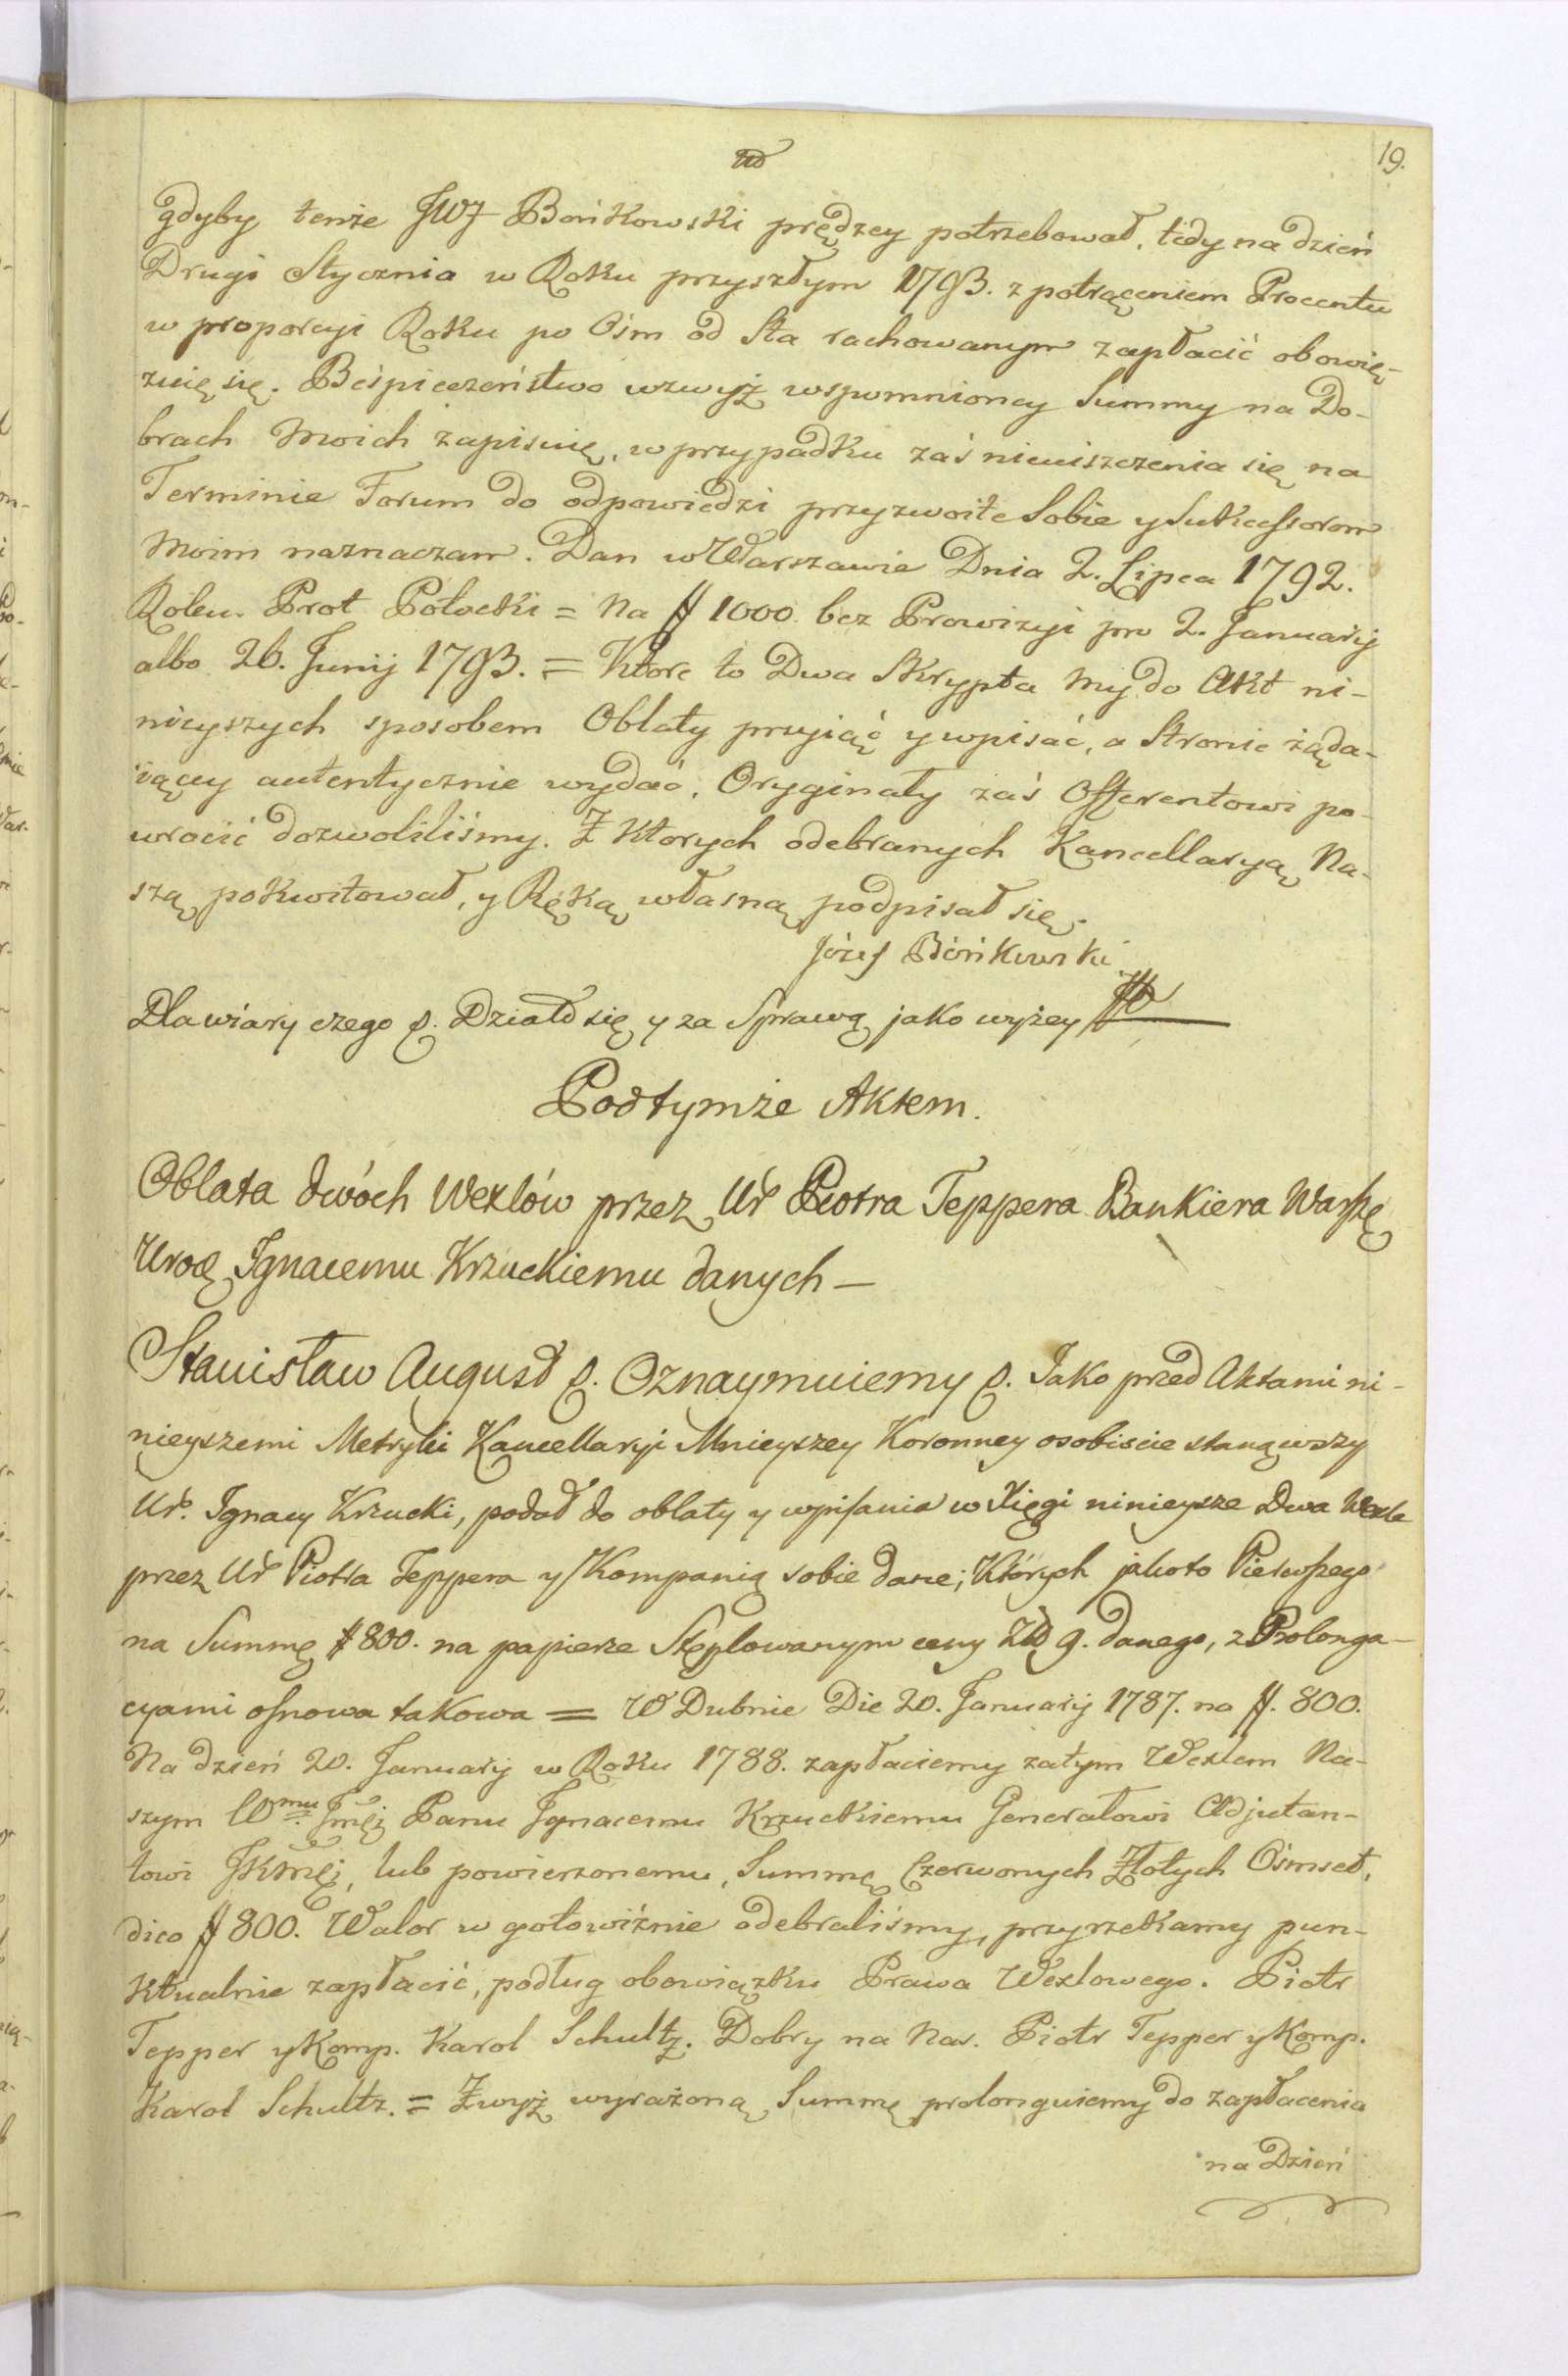 19.
gdyby tenże JWJ Bońkowski prędzey potrzebował, tedy na dzień
Drugi Stycznia w Roku przyszłym 1793. z potrąceniem Procentu
w proporcyi Roku po Ośm od Sta rachowanym zapłacić obowię-
zuię się. Beśpieczeństwo wzwyż wspomnioney Summy na Do-
brach Moich zapisuię, w przypadku zaś nieuiszczenia się na
Terminie Forum do odpowiedzi przyzwoite Sobie y Sukcessorom
Moim naznaczam. Dan w Warszawie Dnia 2. Lipca 1792.
Prot Potocki = Na # 1000. bez Prowizyi pro 2. Januarij
albo 26. Junij 1793. = Ktore to Dwa Skrypta My do Akt ni-
nieyszych sposobem Oblaty przyiąć y wpisać, a Stronie żąda-
iącey autentycznie wydać, Oryginały zaś Offerentowi po-
wrocić dozwoliliśmy. Z ktorych odebranych Kancellaryą Na-
szą pokwitował, y Ręką własną podpisał się.
Józef Bońkowski
Dla wiary czego p. Działo się y za Sprawą jako wyżey
Pod tymże Aktem.
Oblata dwóch Wexlów przez Ur Piotra Teppera Bankiera Warszę
Uroę Ignacemu Krzuckiemu danych —
Stanisław August p. Oznaymuiemy p. Jako przed Aktami ni-
nieyszemi Metryki Kancellaryi Mnieyszey Koronney osobiscie stanąwszy
Ur. Ignacy Krzucki, podał do oblaty y wpisania w Xięgi ninieysze Dwa Wexle
przez Ur Piotra Teppera y Kompanią sobie dane; Których jakoto Pierwszego
na Summę # 800. na papierze Stęplowanym ceny Zł 9. danego, z Prolonga-
cyami osnowa takowa = W Dubnie Die 20. Januarij 1787. na #. 800.
Na dzień 20. Januarij w Roku 1788. zapłaciemy za tym Wexlem Na-
szym Wmu. Jmći Panu Ignacemu Krzuckiemu Generałowi Adjutan-
towi JKMći, lub powierzonemu, Summę Czerwonych Złotych Ośmset,
dico # 800. Walor w gotowiźnie odebraliśmy, przyrzekamy pun-
ktualnie zapłacić, podług obowiązku Prawa Wexlowego. Piotr
Tepper y Komp. Karol Schultz. Dobry na Nas. Piotr Tepper y Komp.
Karol Schultz. = Zwyż wyrażoną Summę prolonguiemy do zapłacenia
na Dzień